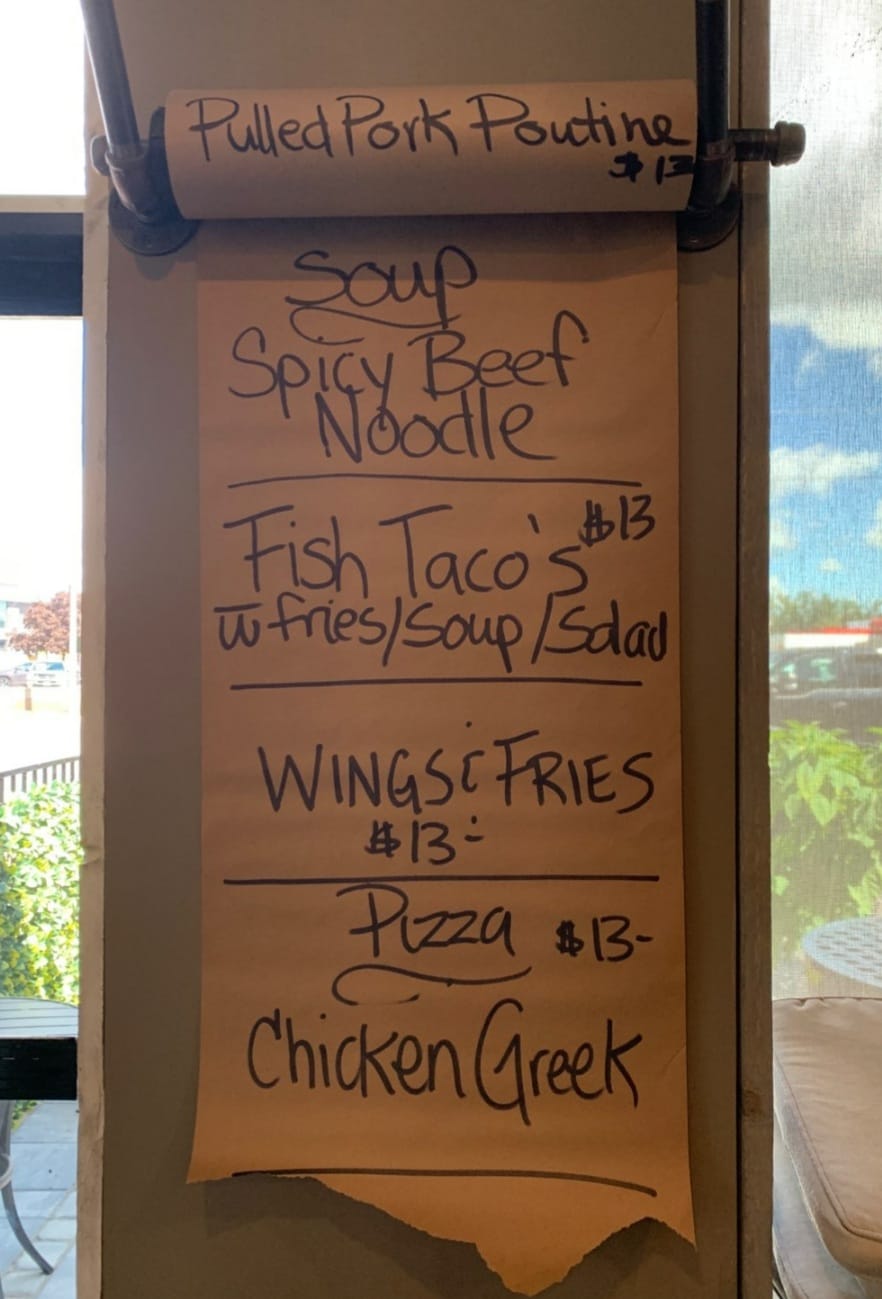 Pulled Pork Poutine
$13
Soup
Spicy Beef
Noodle
$13
Fish Taco's
w̅ fries/Soup/Salad
WINGS & FRIES
$13-
Pizza $13-
Chicken Greek